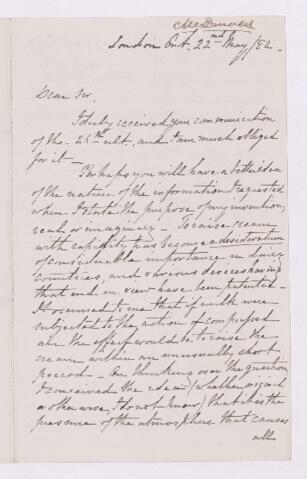 London Ont. 22nd May/82.
Dear Sir,
I duly received your communication
of the 25th ult., and am much obliged
for it —
Perhaps you will have a better idea
of the nature of the information I requested
when I state the purpose of my invention,
real or imaginary — To raise cream
with rapidity has become a desideratum
of considerable importance in dairy
countries, and various devices having
that end in view have been patented —
It occurred to me that if milk were
subjected to the action of compressed
air the effect would be to raise the
cream within an unusually short
period — On thinking over the question,
I conceived the idea (whether original
or otherwise, I do not know) that it is the
pressure of the atmosphere that causes
all